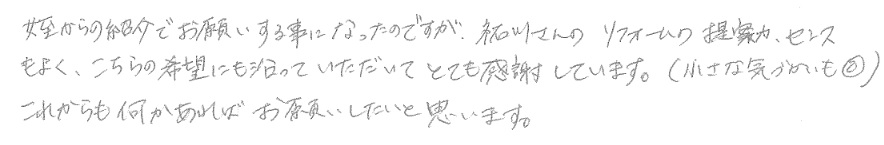 姪からの紹介でお願いする事になったのですが、祐川さんの リフォームの 提案力、センス
もよく、こちらの希望にも沿っていただいて とても感謝しています。(小さな気づかいも◎)
これからも 何かあれば お願いしたいと思います。